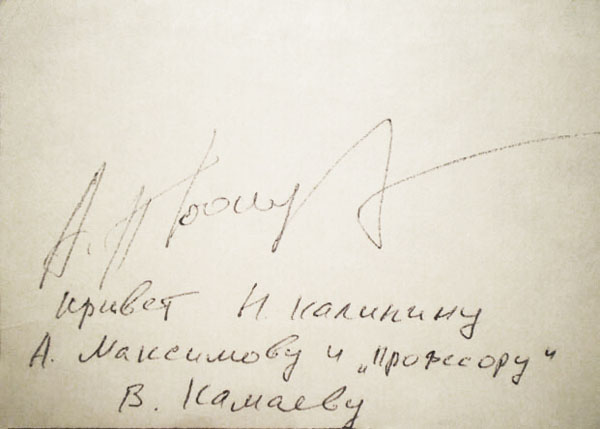 А.
привет Н. Калинину
А. Максимову и „профессору“
В. Камаеву